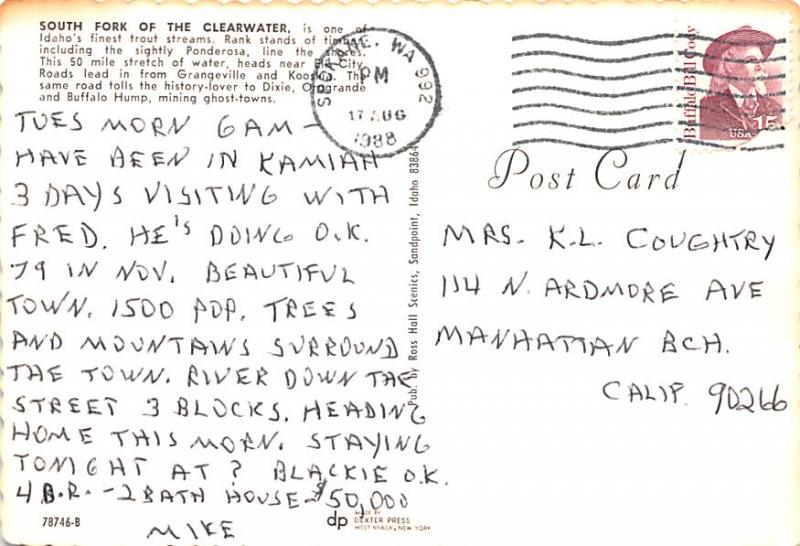 SOUTH FORK OF THE CLEARWATER, is one of
Idaho's finest trout streams. Rank stands of timber,
including the sightly Ponderosa, line the shores.
This 50 mile stretch of water, heads near Elk City.
Roads lead in from Grangeville and Kooskia. The
same road tolls the history-lover to Dixie, Orogrande
and Buffalo Hump, mining ghost-towns.
TUES MORN 6AM—
HAVE BEEN IN KAMIAH
3 DAYS VISITING WITH
FRED. HE'S DOING O.K.
79 IN NOV. BEAUTIFUL
TOWN. 1500 POP. TREES
AND MOUNTAINS SURROUND
THE TOWN. RIVER DOWN THE
STREET 3 BLOCKS. HEADING
HOME THIS MORN. STAYING
TONIGHT AT ? BLACKIE O.K.
4 B.R.-2 BATH HOUSE-$50,000
MIKE
78746-B
Pub. by Ross Hall Scenics, Sandpoint, Idaho 83864
dp
MADE BY
DEXTER PRESS
WEST NYACK, NEW YORK
SPOKANE, WA 992
PM
17 AUG
1988
Buffalo Bill Cody
USA 15
Post Card
MRS. K.L. COUGHTRY
114 N. ARDMORE AVE
MANHATTAN BCH.
CALIF. 90266